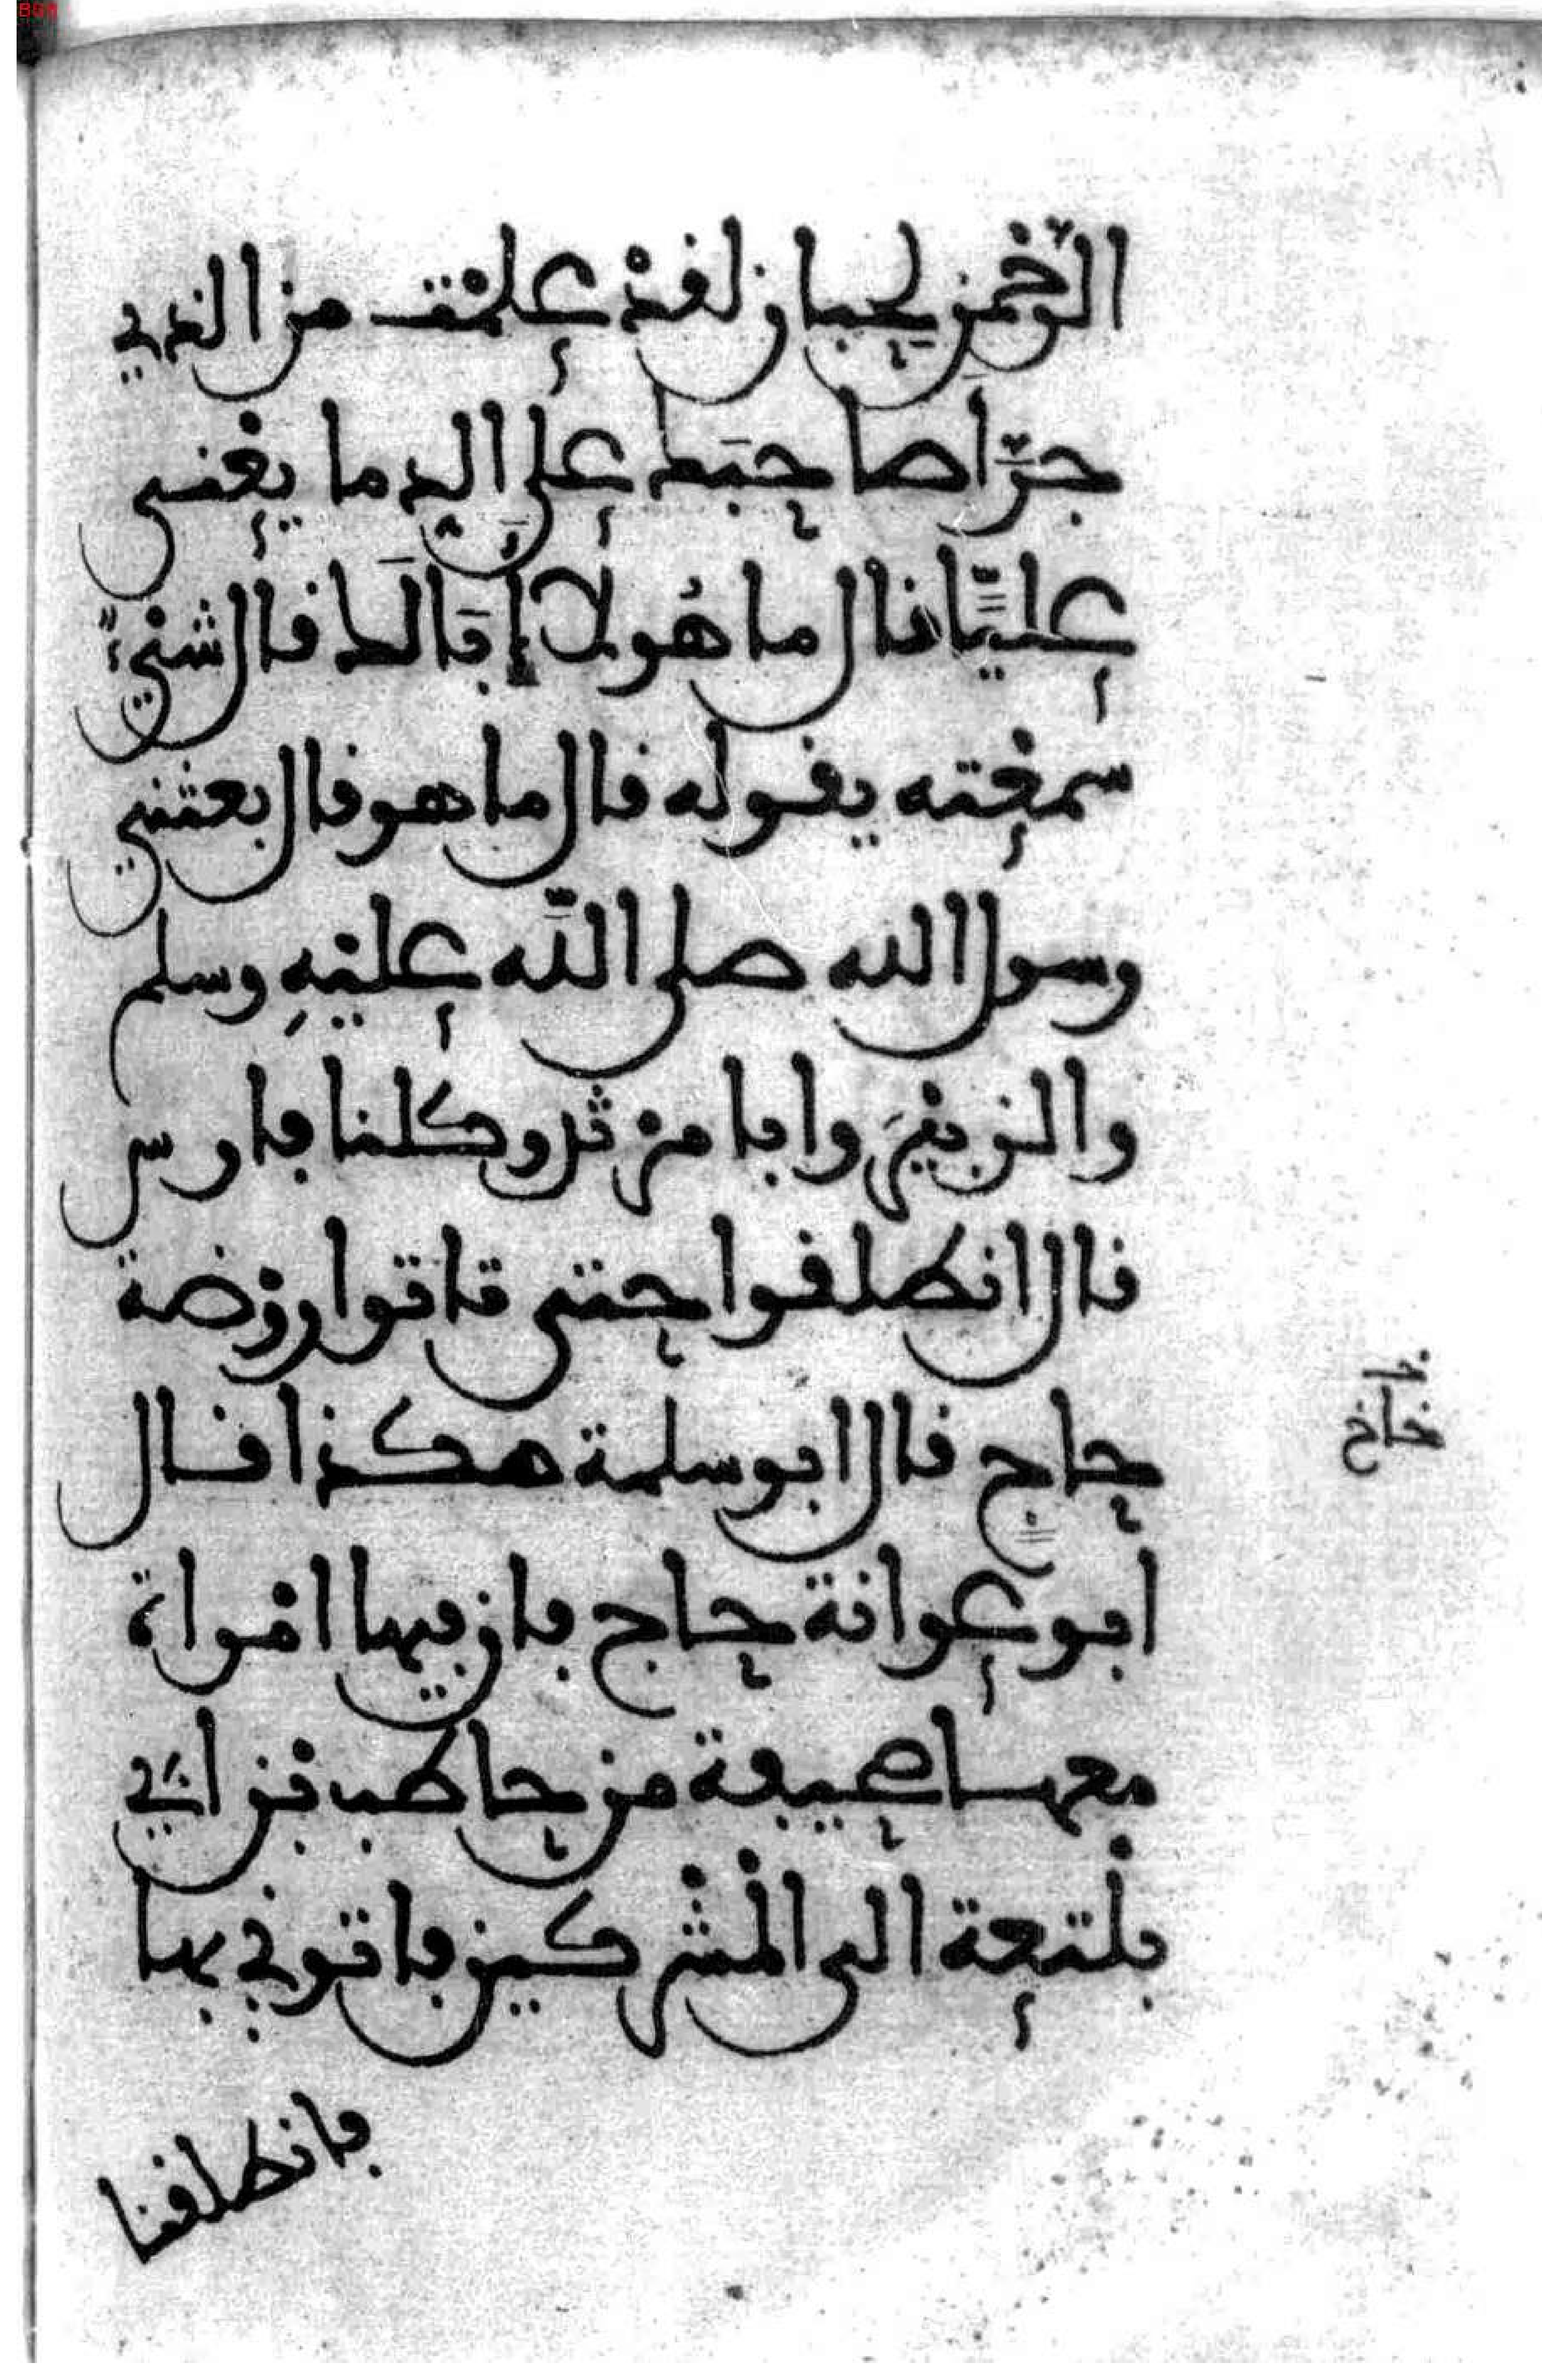 الرّحمن لحبان لقد علمت من الذي
جرّأ صاحبك على الدما يعني
عليّا قال ما هولاء لا أبا لك قال شيء
سمعته يقوله قال ما هو قال بعثني
رسول الله صلى اللّه عليه وسلم
والزبير وابا مرثد وكلنا فارس
قال انطلقوا حتى تاتوا روضة
حاج قال ابو سلمة هكذا قال
ابو عوانة حاج فان فيها امراة
معها صحيفة من حاطب بن ابي
بلتعة الى المشركين فاتوني بها
فانطلقنا
خاخ